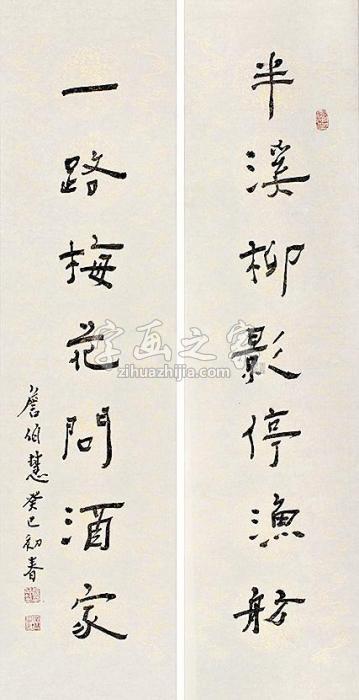 半溪柳影停漁舫
一路梅花問酒家
詹伯慧癸巳初春
字画之家
zihuazhijia.com